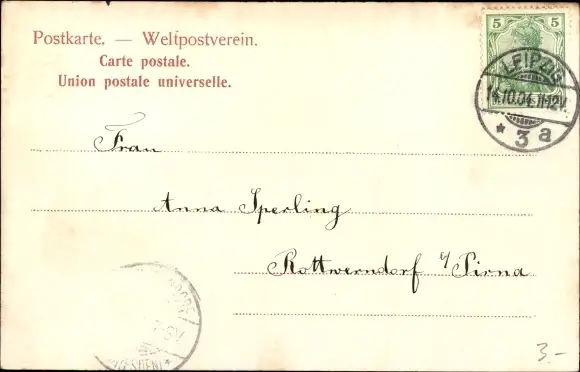 Postkarte. — Weltpostverein.
Carte postale.
Union postale universelle.
5 5
LEIPZIG
14.10.04.11-12V.
* 3 a
Frau
Anna Sperling
Rottwerndorf b/Pirna
3.-